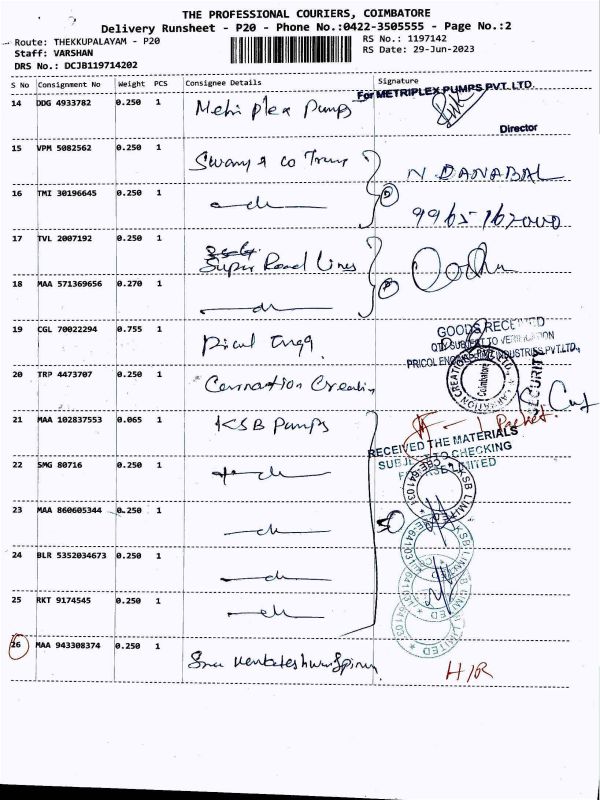 THE PROFESSIONAL COURIERS, COIMBATORE
Delivery Runsheet - P20 - Phone No.:0422-3505555 - Page No.:2
Route: THEKKUPALAYAM - P20 RS No.: 1197142
Staff: VARSHAN RS Date: 29-Jun-2023
DRS No.: DCJB119714202
S No Consignment No Weight PCS Consignee Details Signature
For METRIPLEX PUMPS PVT. LTD.
14 DDG 4933782 0.250 1 Metri plex Pumps
Director
15 VPM 5082562 0.250 1 Swamy & co Trump
N. DANABAL
16 TMI 30196645 0.250 1
9965162000
17 TVL 2007192 0.250 1 Super Road Lines
18 MAA 571369656 0.270 1
19 CGL 70022294 0.755 1 Pricol Engg.
GOODS RECEIVED
QTY SUBJECT TO VERIFICATION
PRICOL INDUSTRIES PVT.LTD.,
20 TRP 4473707 0.250 1 Carnation Creation
CARNATION CREATIONS Coimbatore
SECURITY
21 MAA 102837553 0.065 1 KSB Pumps
1 Packet.
RECEIVED THE MATERIALS
SUBJECT TO CHECKING
FOR KSB LIMITED
22 SMG 80716 0.250 1
KSB LIMITED CBE-641103
23 MAA 860605344 0.250 1
KSB LIMITED CBE-641103
24 BLR 5352034673 0.250 1
25 RKT 9174545 0.250 1
26 MAA 943308374 0.250 1
H/R